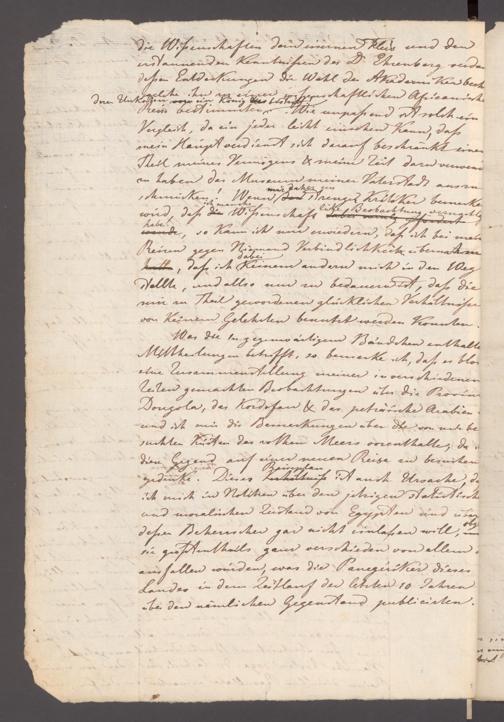 die Wissenschaften dem eisernen Fleis und den
erstaunenden Kenntnissen des Dr Ehrenberg verdan
dessen Entdeckungen die Wahl der Akademie Ker besta
welche ihn zu einer wissenschaftlichen Africanische
Reise bestimmten. Wie unpassend ist solch ein
Vergleich, da ein jeder leicht einsehen kann, daß
mein Haupt verdienst sich darauf beschränkt einen
Theil meines Vermögens & meine Zeit dazu verwen
zu haben das Museum meiner Vaterstadt auszu
schmücken! Wenn strenge Kritiker bemerken
wird, daß die Wissenschaft
habe, so kann ich nur erwiedern, daß ich bei meinen
Reisen gegen Niemand Verbindlichkeit übernommen
hatte, daß ich dabei Keinem andern mich in den Weg
stellte, und also nur zu bedauern ist, daß die
mir zu Theil gewordenen glücklichen Verhältnisse
von Keinem Gelehrten benutzt werden konnten.
Was die in gegenwärtigem Bändchen enthalte
Mittheilungen betrifft, so bemerke ich, daß es blos
eine Zusammenstellung meiner in verschiedenen
Zeiten gemachten Beobachtungen über die Provinz
Dongola, das Kordofan & das peträische Arabien
und ich mir die Bemerkungen über die von mir be
suchten Küsten des rothen Meers vorenthalte, da i
diese Gegend auf einer neuen Reise zu bereichern
gedenke. Dieses ist auch Ursache, da
ich mich in Notitzen über den jetzigen statistisch
und moralischen Zustand von Egypten und über
dessen Beherrscher gar nicht einlassen will,
sie größtentheils ganz verschieden von allem
ausfallen würden, was die Panegiriker dieses
Landes in dem Zeitlauf der letzten 10 Jahren
über den nämlichen Gegenstand publicirten.